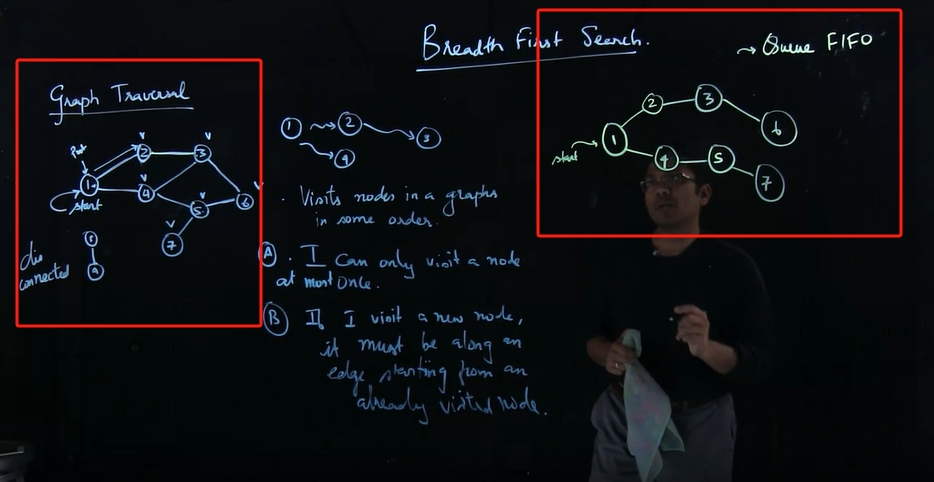 Breadth First Search.
→ Queue FIFO
Graph Traversal
1 2 3 4 5 6 7
start
8
9
dis
connected
1 → 2 → 3
4
. Visits nodes in a graphs
in some order.
A . I can only visit a node
at most once.
B If I visit a new node,
it must be along an
edge starting from an
already visited node.
start → 1
2 3 6
4 5 7